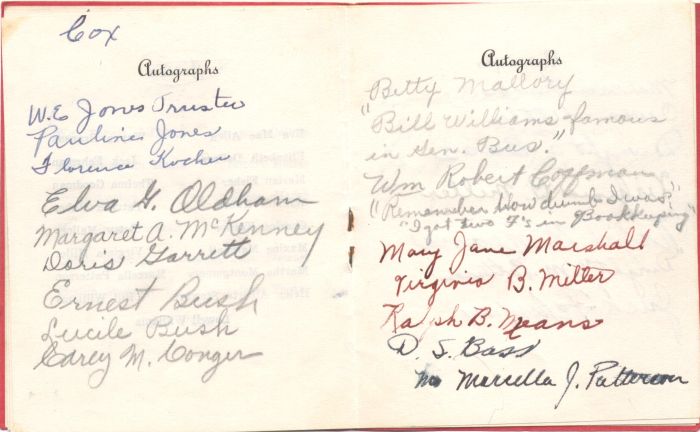 Cox
Autographs
W.E. Jones Trustee
Pauline Jones
Florence Kocher
Elva G. Oldham
Margaret A. McKenney
Doris Garrett
Ernest Bush
Lucile Bush
Carey M. Conger
Autographs
Betty Mallory
"Bill Williams famous
in Gen. Bus."
Wm Robert Coffman
"Remember how dumb I was?
"I got two F's in Bookkeeping"
Mary Jane Marshall
Virginia B. Miller
Ralph B. Means
D. S. Bass
Marcella J. Patterson